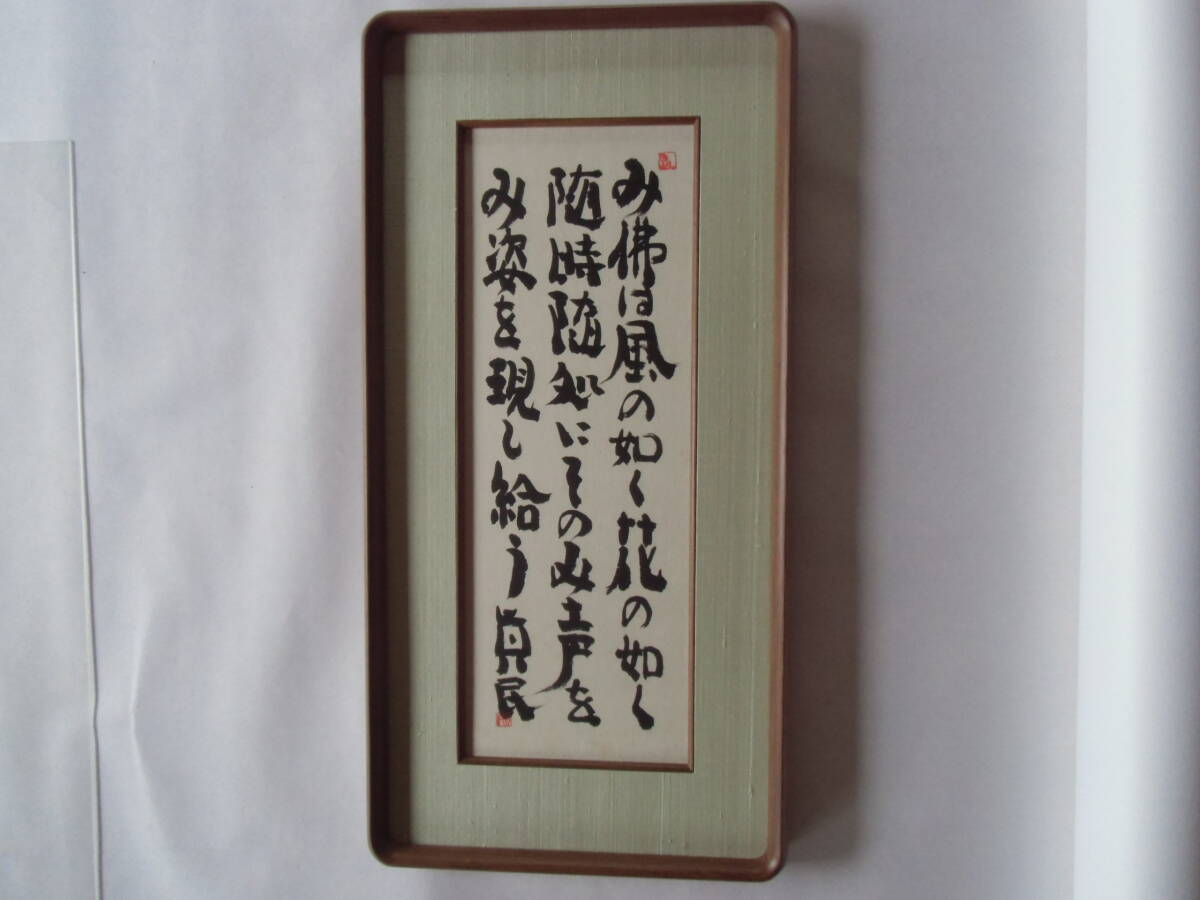 み佛は風の如く花の如く
随時随処にそのみ声を
み姿を現し給う 真民